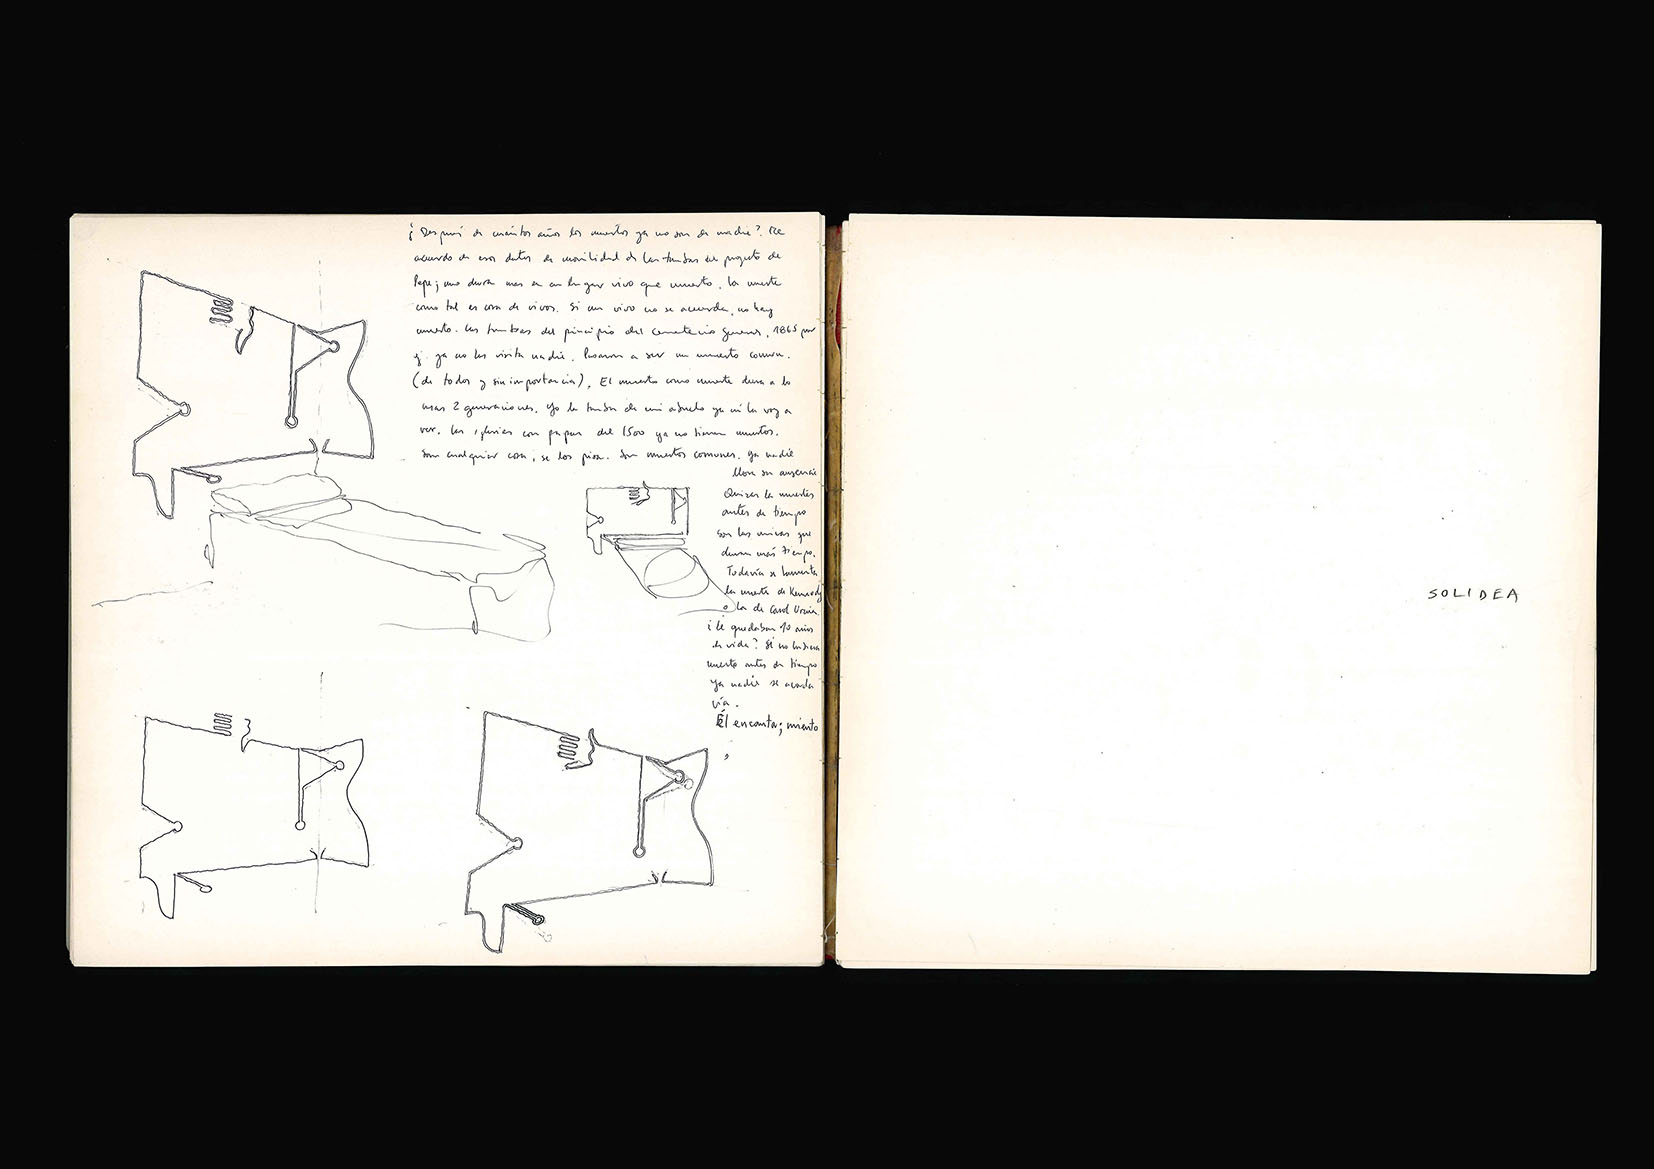 ¿Después de cuántos años los muertos ya no son de nadie? Me
acuerdo de esos datos de movilidad de las tumbas del proyecto de
Pepe; uno dura mas en un lugar vivo que muerto. La muerte
como tal es cosa de vivos. Si un vivo no se acuerda, no hay
muerto. Las tumbas del principio del cementerio general, 1865 por
ej. ya no las visita nadie. Pasaron a ser un muerto comun.
(de todos y sin importancia). El muerto como muerte dura a lo
mas 2 generaciones. Yo la tumba de mi abuelo ya ni la voy a
ver. Las iglesias con papas del 1500 ya no tienen muertos.
Son cualquier cosa, se los pisa. Son muertos comunes. Ya nadie
llora su ausencia
Quizas las muertes
antes de tiempo
son las unicas que
duran más tiempo.
Todavía se lamenta
la muerte de Kennedy
o la de Carol Urzúa
¿le quedaban 10 años
de vida? Si no hubiera
muerto antes de tiempo
ya nadie se acorda
vía.
Él encanta; miento
,
SOLIDEA